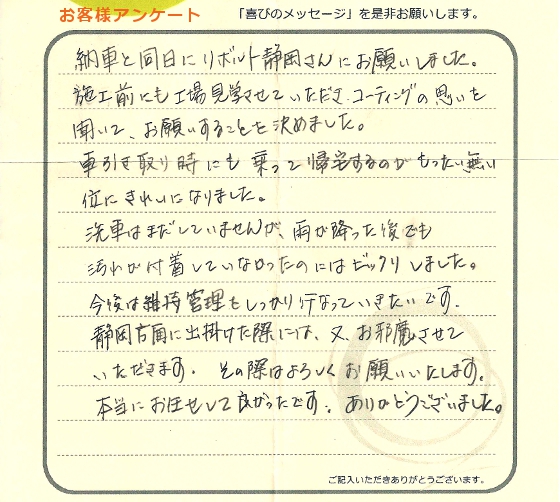 お客様アンケート 「喜びのメッセージ」を是非お願いします。
納車と同日にリボルト静岡さんにお願いしました。
施工前にも工場見学させていただき、コーティングの思いを
聞いて、お願いすることを決めました。
車引き取り時にも乗って帰宅するのがもったい無い
位にきれいになりました。
洗車はまだしていませんが、雨が降った後でも
汚れが付着していなかったのにはビックリしました。
今後は維持管理をしっかり行なっていきたいです。
静岡方面に出掛けた際には、又、お邪魔させて
いただきます。その際はよろしくお願いいたします。
本当にお任せして良かったです。ありがとうございました。
ご記入いただきありがとうございます。